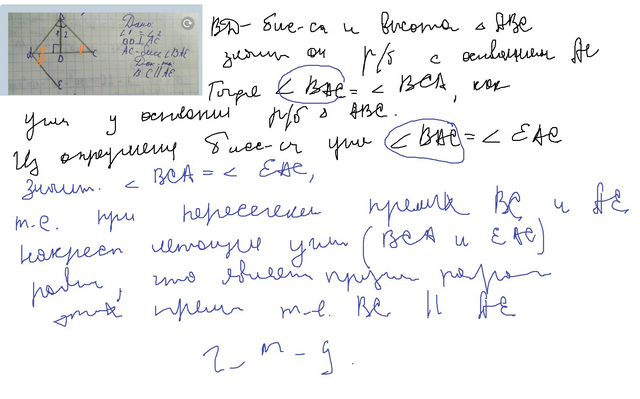 Дано:
∠1 = ∠2
BD ⊥ AC
AC - бисс ∠BAE
Док-ть:
BC || AE
BD - бис-са и высота △ ABC
значит он р/б с основанием AC
Тогда ∠ BAC = ∠ BCA, как
углы у основания р/б △ ABC.
Из определения бисс-сы угла ∠ BAC = ∠ EAC
значит. ∠ BCA = ∠ EAC,
т.е. при пересечении прямых BC и AE
накрест лежащие углы (BCA и EAC)
равны, что является признаком
прямых т.е. BC || AE